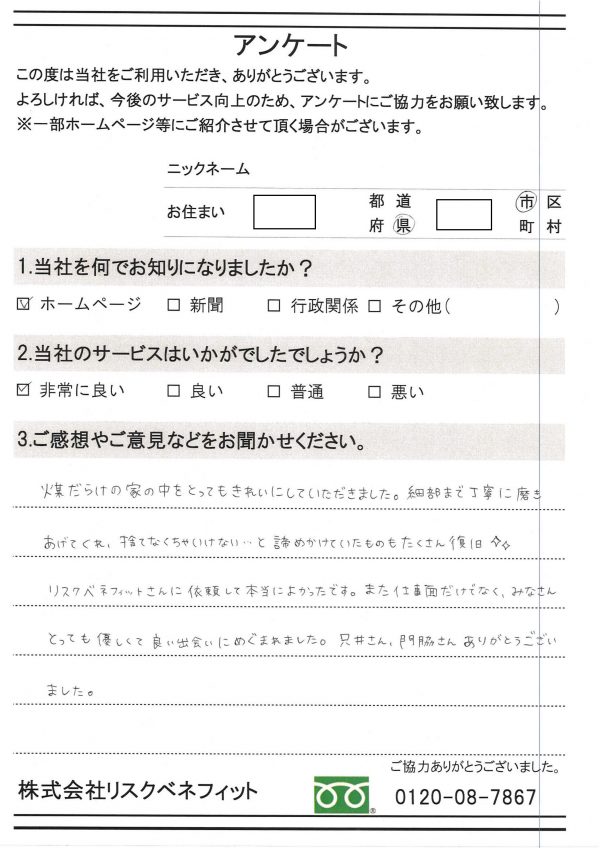 アンケート
この度は当社をご利用いただき、ありがとうございます。
よろしければ、今後のサービス向上のため、アンケートにご協力をお願い致します。
※一部ホームページ等にご紹介させて頂く場合がございます。
ニックネーム
お住まい 都 道 市 区
府 県 町 村
1.当社を何でお知りになりましたか？
☑ ホームページ □ 新聞 □ 行政関係 □ その他( )
2.当社のサービスはいかがでしたでしょうか？
☑ 非常に良い □ 良い □ 普通 □ 悪い
3.ご感想やご意見などをお聞かせください。
煤だらけの家の中をとってもきれいにしていただきました。細部まで丁寧に磨き
あげてくれ、捨てなくちゃいけない…と諦めかけていたものもたくさん復旧✧✧
リスクベネフィットさんに依頼して本当によかったです。また仕事面だけでなく、みなさん
とっても優しくて良い出会いにめぐまれました。只井さん、門脇さんありがとうござい
ました。
ご協力ありがとうございました。
株式会社リスクベネフィット ® 0120-08-7867